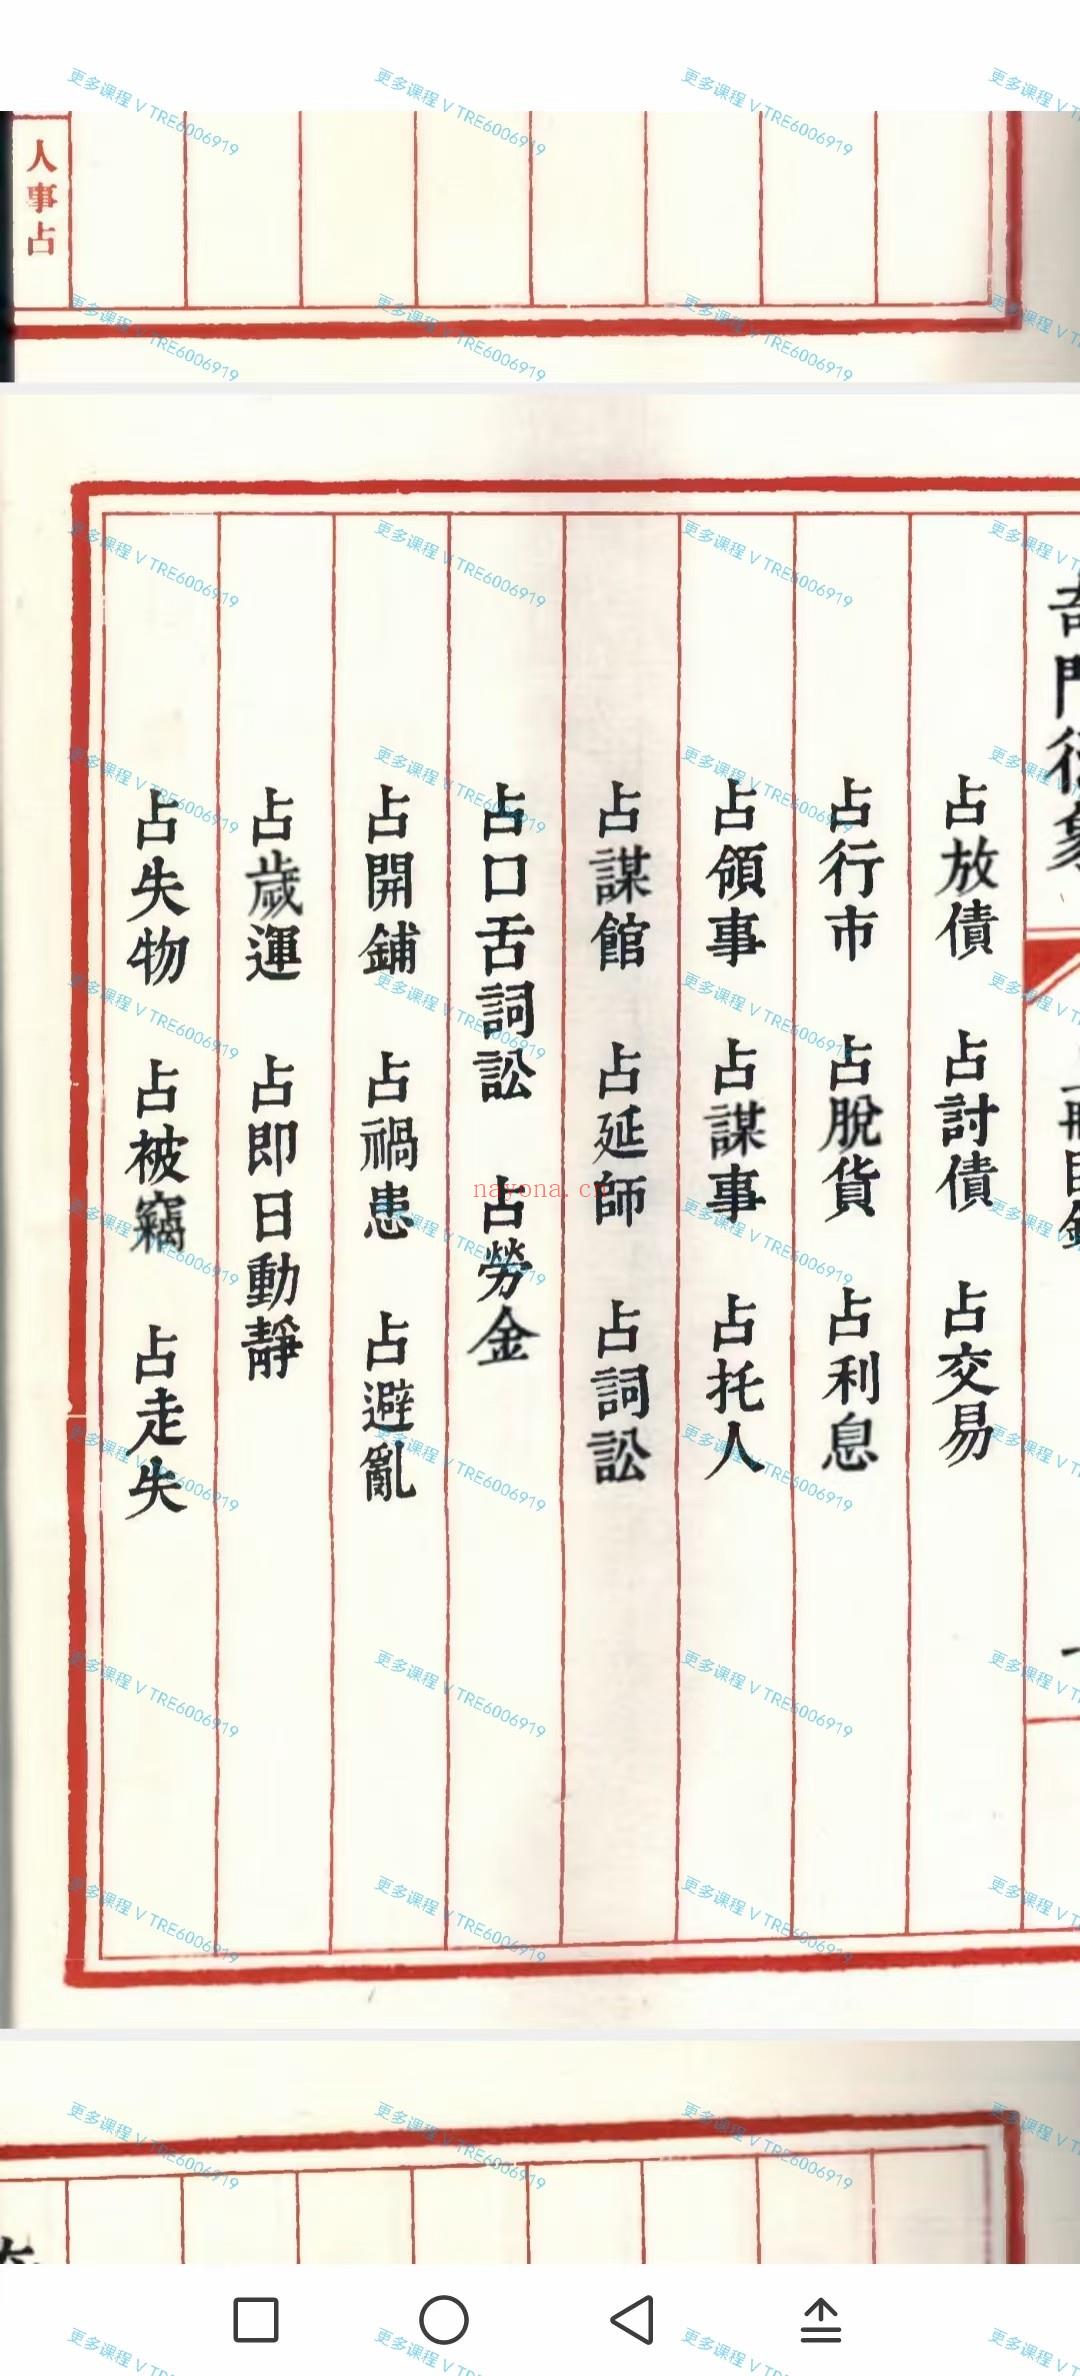 人事占
占放債 占討債 占交易
占行市 占脫貨 占利息
占領事 占謀事 占托人
占謀館 占延師 占詞訟
占口舌詞訟 占勞金
占開鋪 占禍患 占避亂
占歲運 占即日動靜
占失物 占被竊 占走失
nayona.cn
更多课程 V TRE6006919